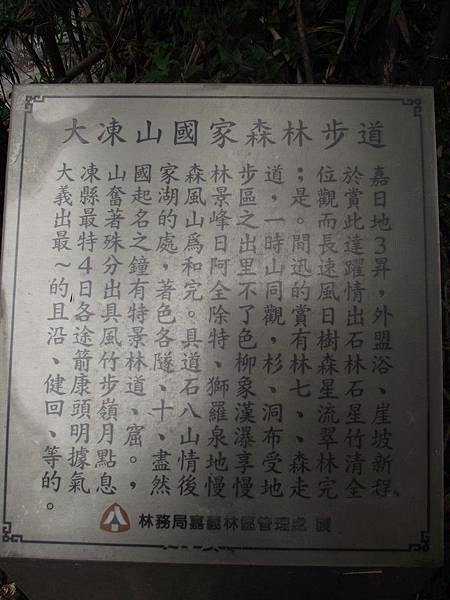 大凍山國家森林步道
嘉日地3昇，外盟浴、崖坡新程、
於賞此達躍情出石林石星竹清全
位觀而長速風日樹森星流翠林完
；是。間迅的賞有林七、、森走
道，一時山同觀，杉、洞布受地
步區之出里不了色柳象漢瀑享慢
林景峰日阿全除特、獅羅泉地慢
森風山為和完。具道石八山情後
家湖的處，著色各隧、十、盡然
國起名之鐘有特景林道、窟。，
山奮著殊分出具風竹步嶺月點息
凍縣最特4日各途箭康頭明據氣
大義出最～的且沿、健回、等的。
林務局嘉義林區管理處